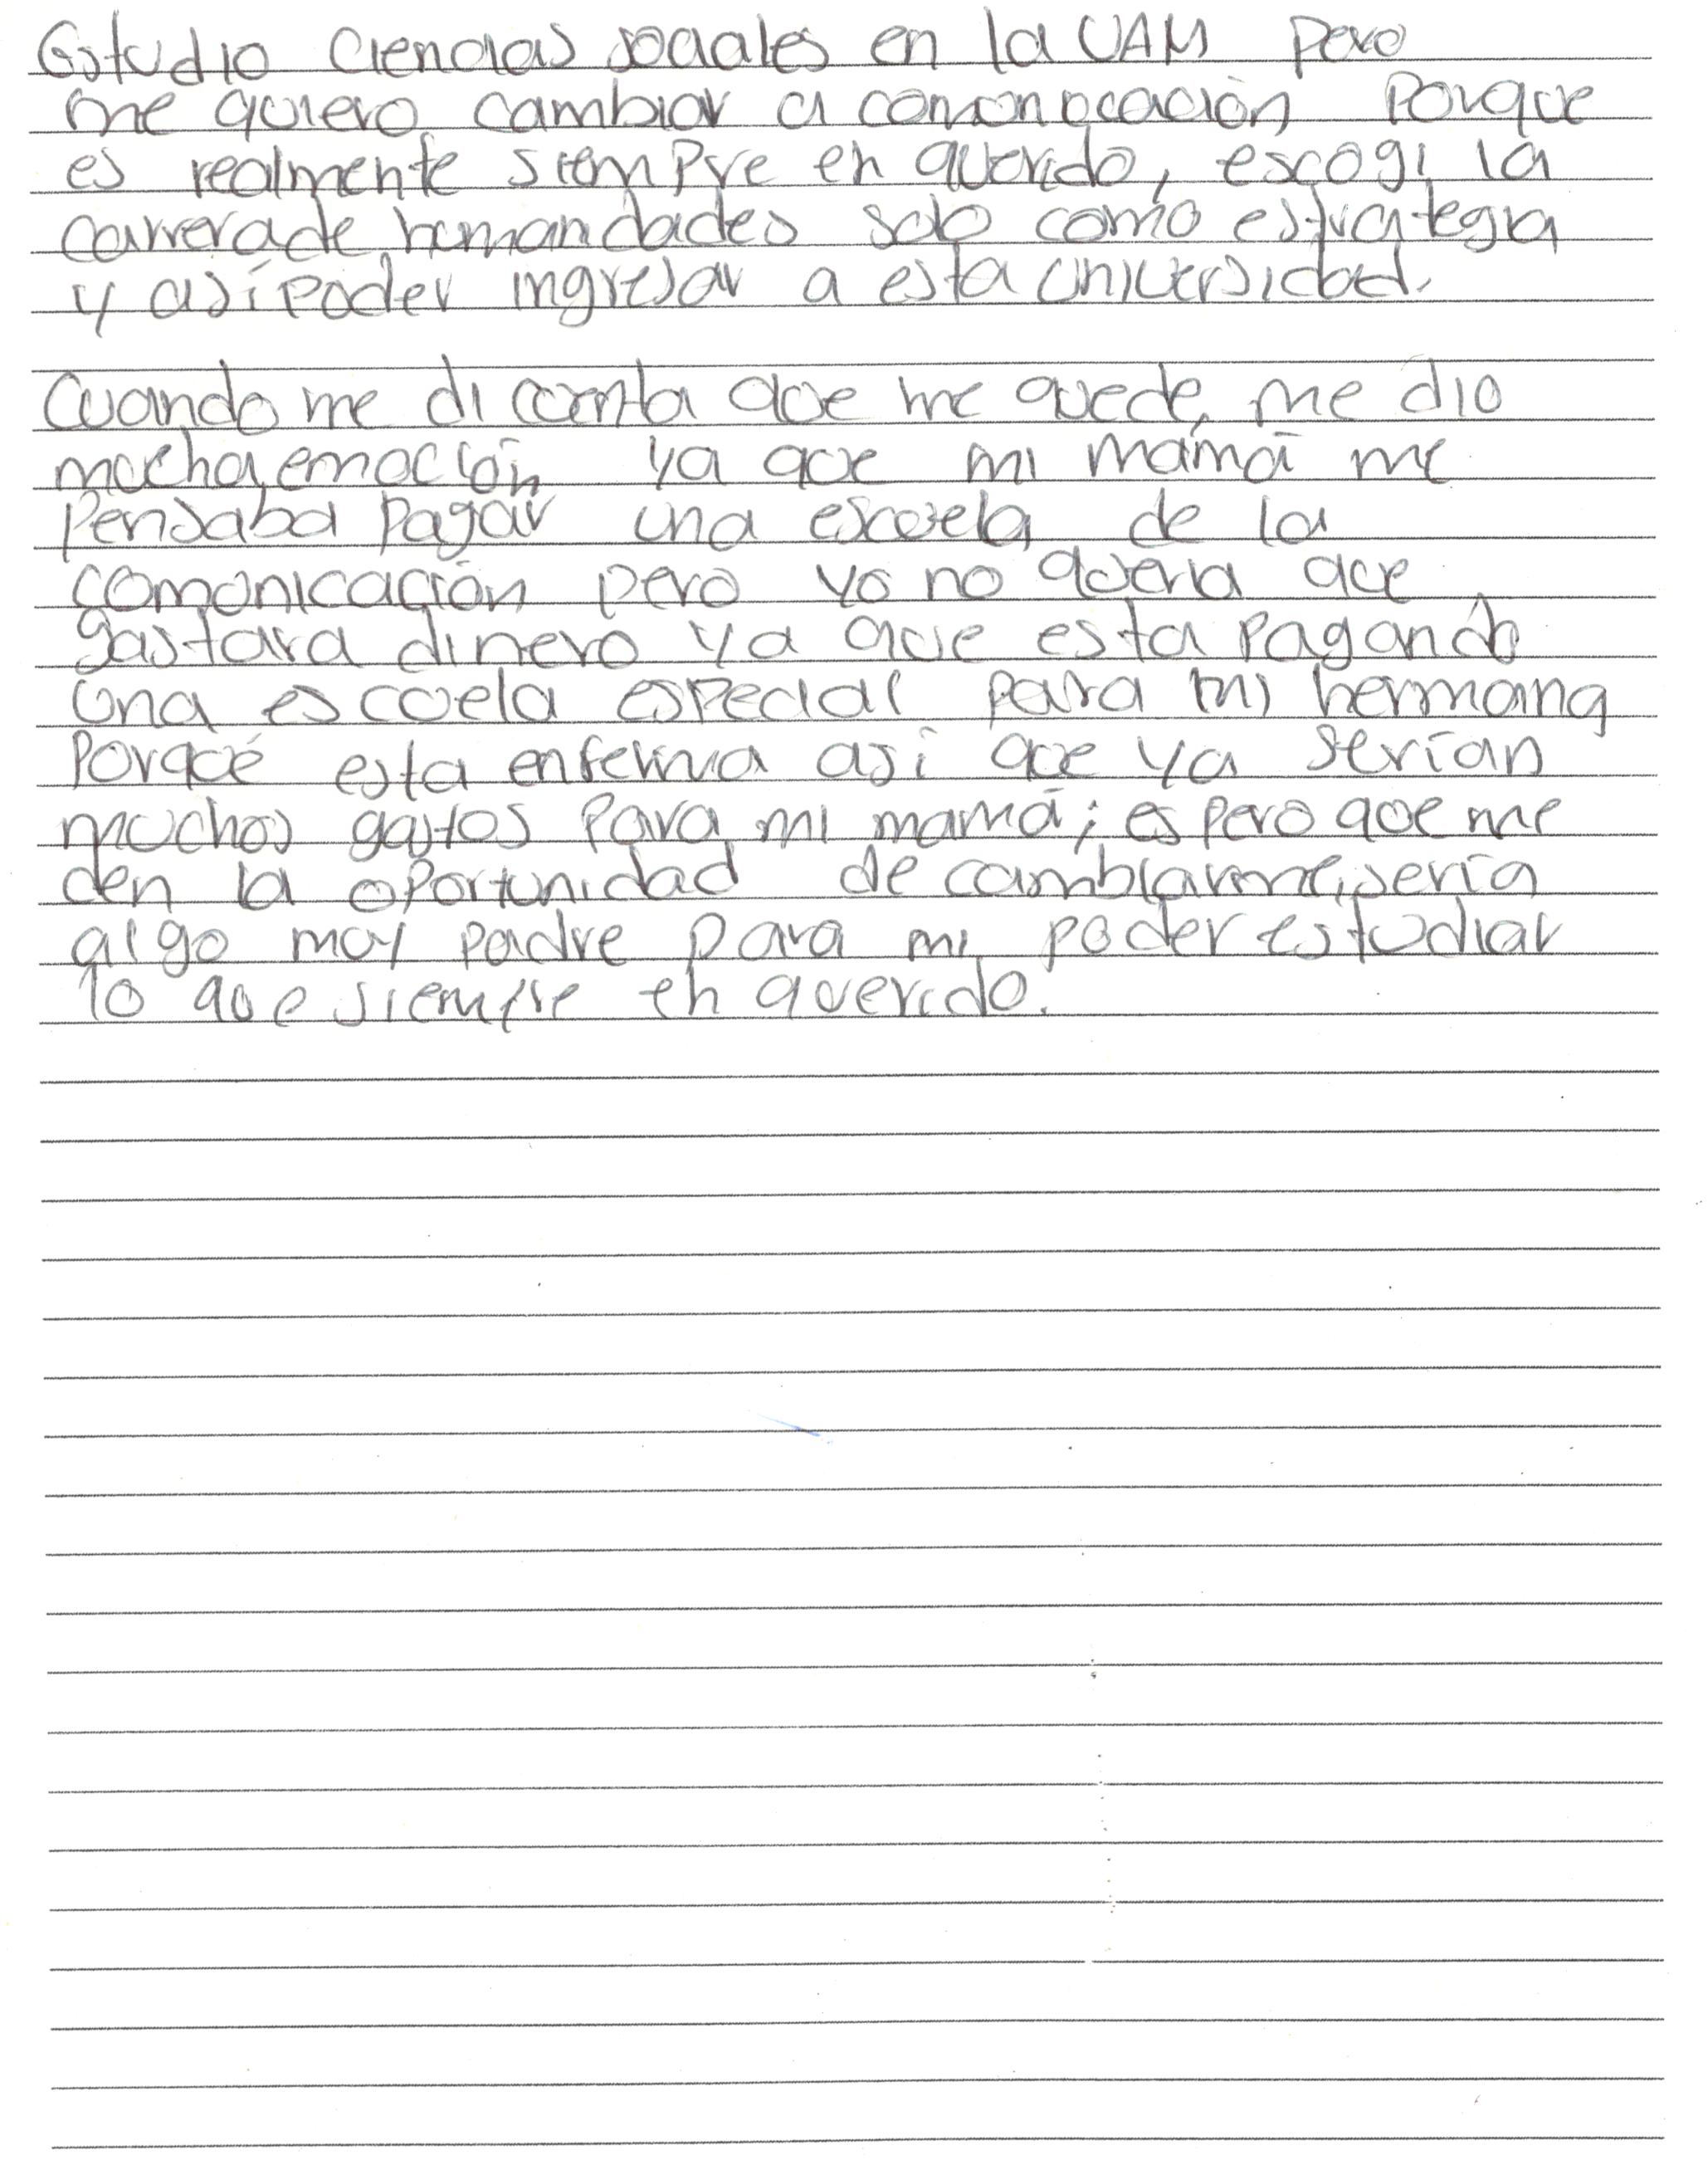 Estudio Ciencias sociales en la UAM pero
me quiero cambiar a comonocación porque
es realmente siempre eh querido, escogi la
carrera de humandades solo como estrategia
y así poder ingresar a esta universidad.
Cuando me di cuenta que me quede, me dio
mucha emoción ya que mi mamá me
pensaba pagar una escuela de la
comunicación pero yo no queria que
gastara dinero ya que esta pagando
una escuela especial para mi hermana
porqué esta enferma asi que ya serían
muchos gastos para mi mamá; espero que me
den la oportunidad de cambiarme, sería
algo muy padre para mi, poder estudiar
lo que siempre eh querido.